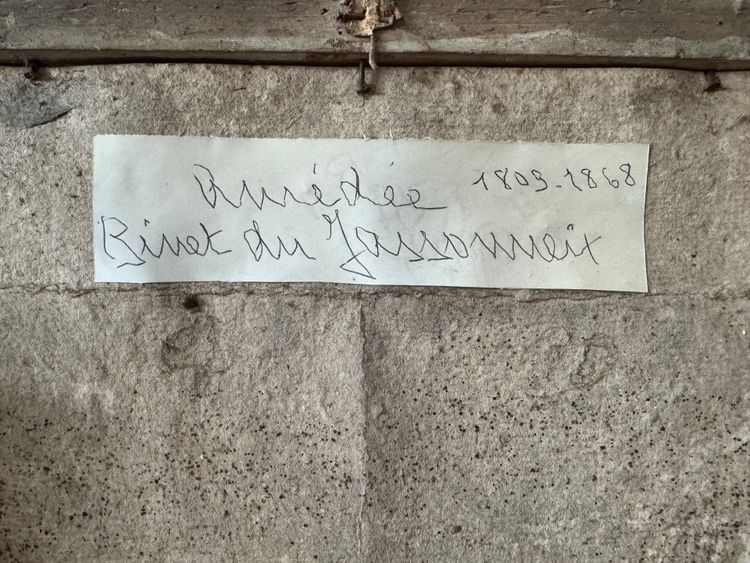 Amédée 1809-1868
Binet du Jassonneix